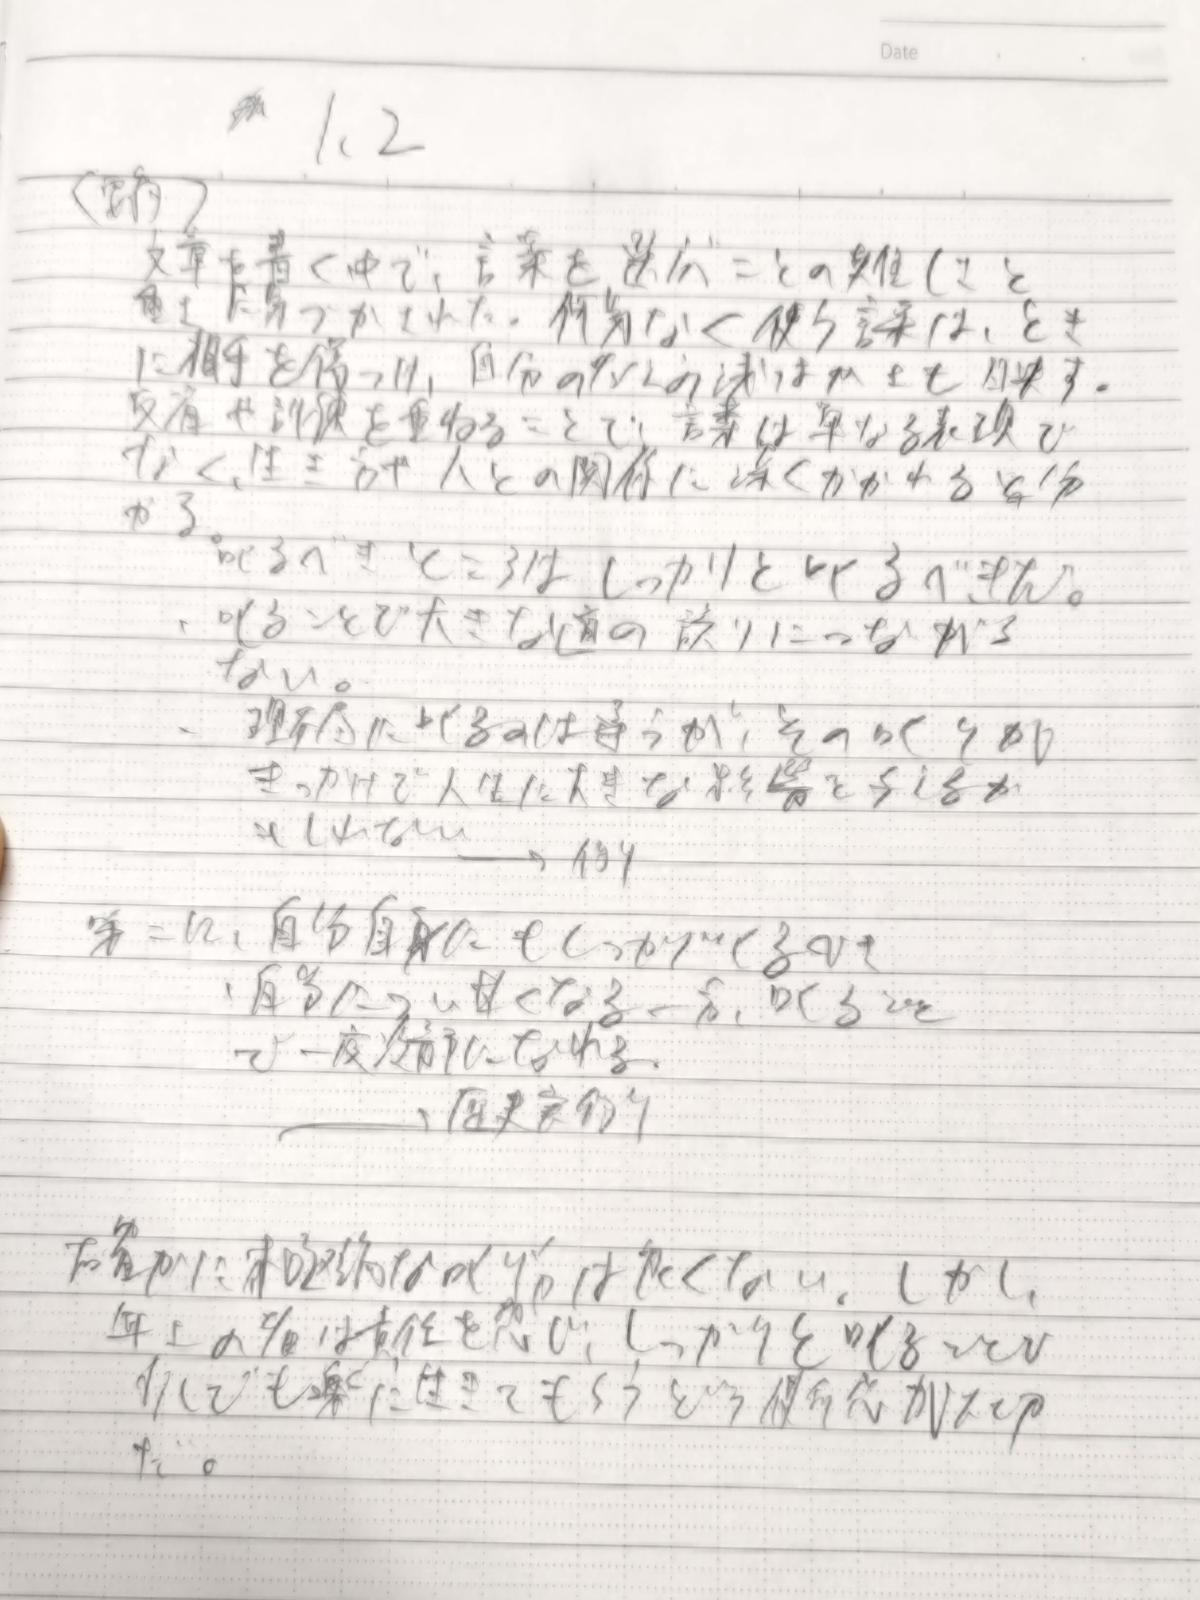 Date
1.2
(要約)
文章を書く中で、言葉を選ぶことの難しさと
重さに気づかされた。何気なく使う言葉は、とき
に相手を傷つけ、自分の心の浅はかさも映す。
反省や訓練を重ねることで、言葉は単なる表現で
なく、生き方や人との関係に深くかかわると分
かる。
叱るべきところはしっかりと叱るべきだ。
・叱ることで大きな道の誤りにつながら
ない。
・理不尽に叱るのは違うが、その叱りが
きっかけで人生に大きな影響を与えるか
もしれない
→ 例
第二に、自分自身にもしっかり叱るべき
・自分についい甘くなる一方、叱ること
で一度冷静になれる。
→ 歴史実例
確かに な叱り方は良くない。しかし、
年上の は責任を感じ、しっかりと叱ることで
少しでも楽に生きてもらうという が大切
だ。